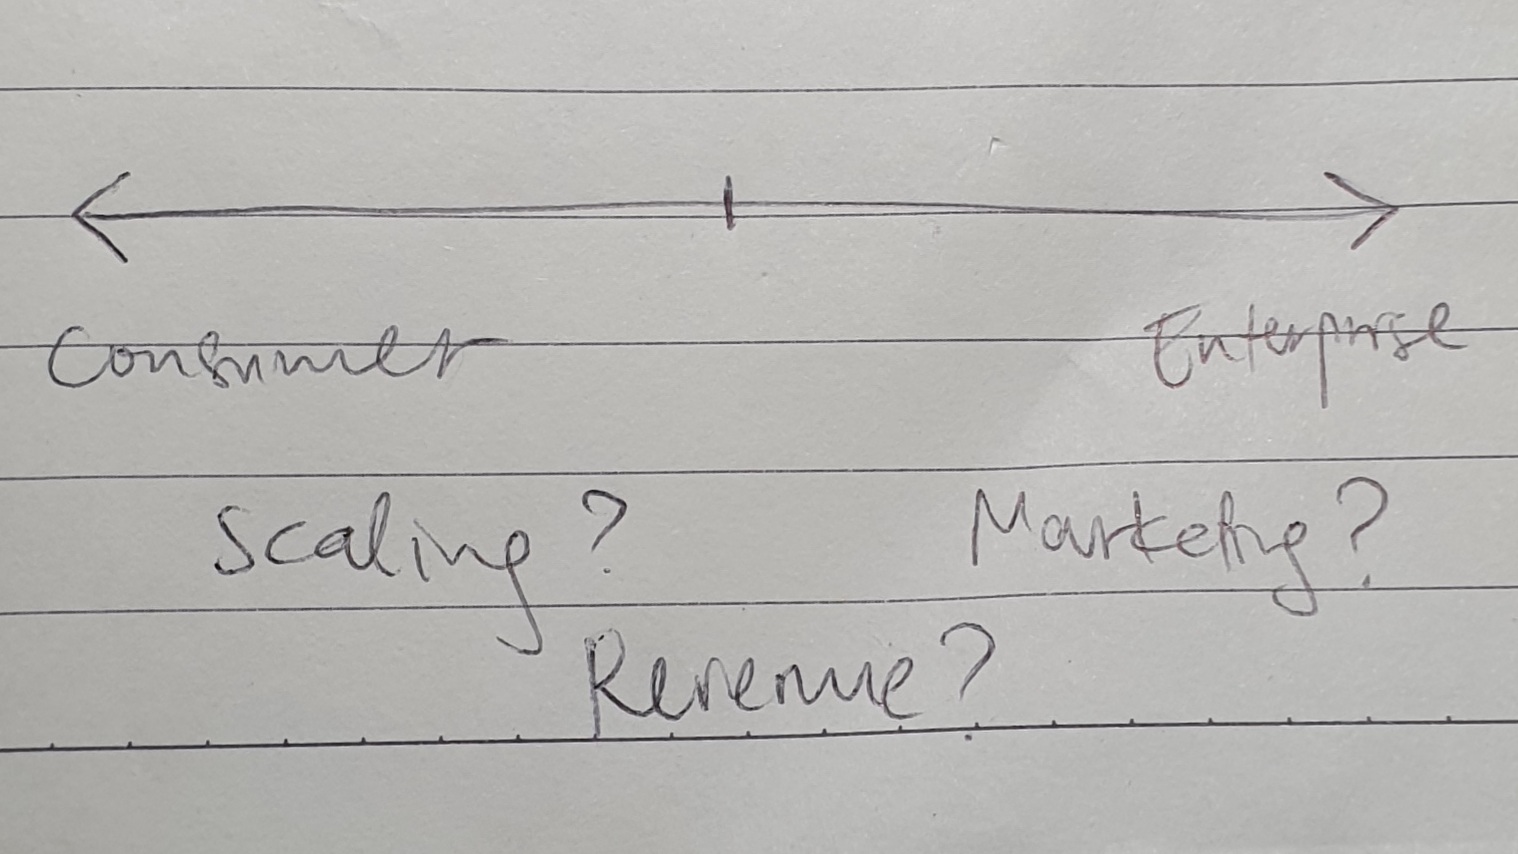 Consumer Enterprise
Scaling? Marketing?
Revenue?